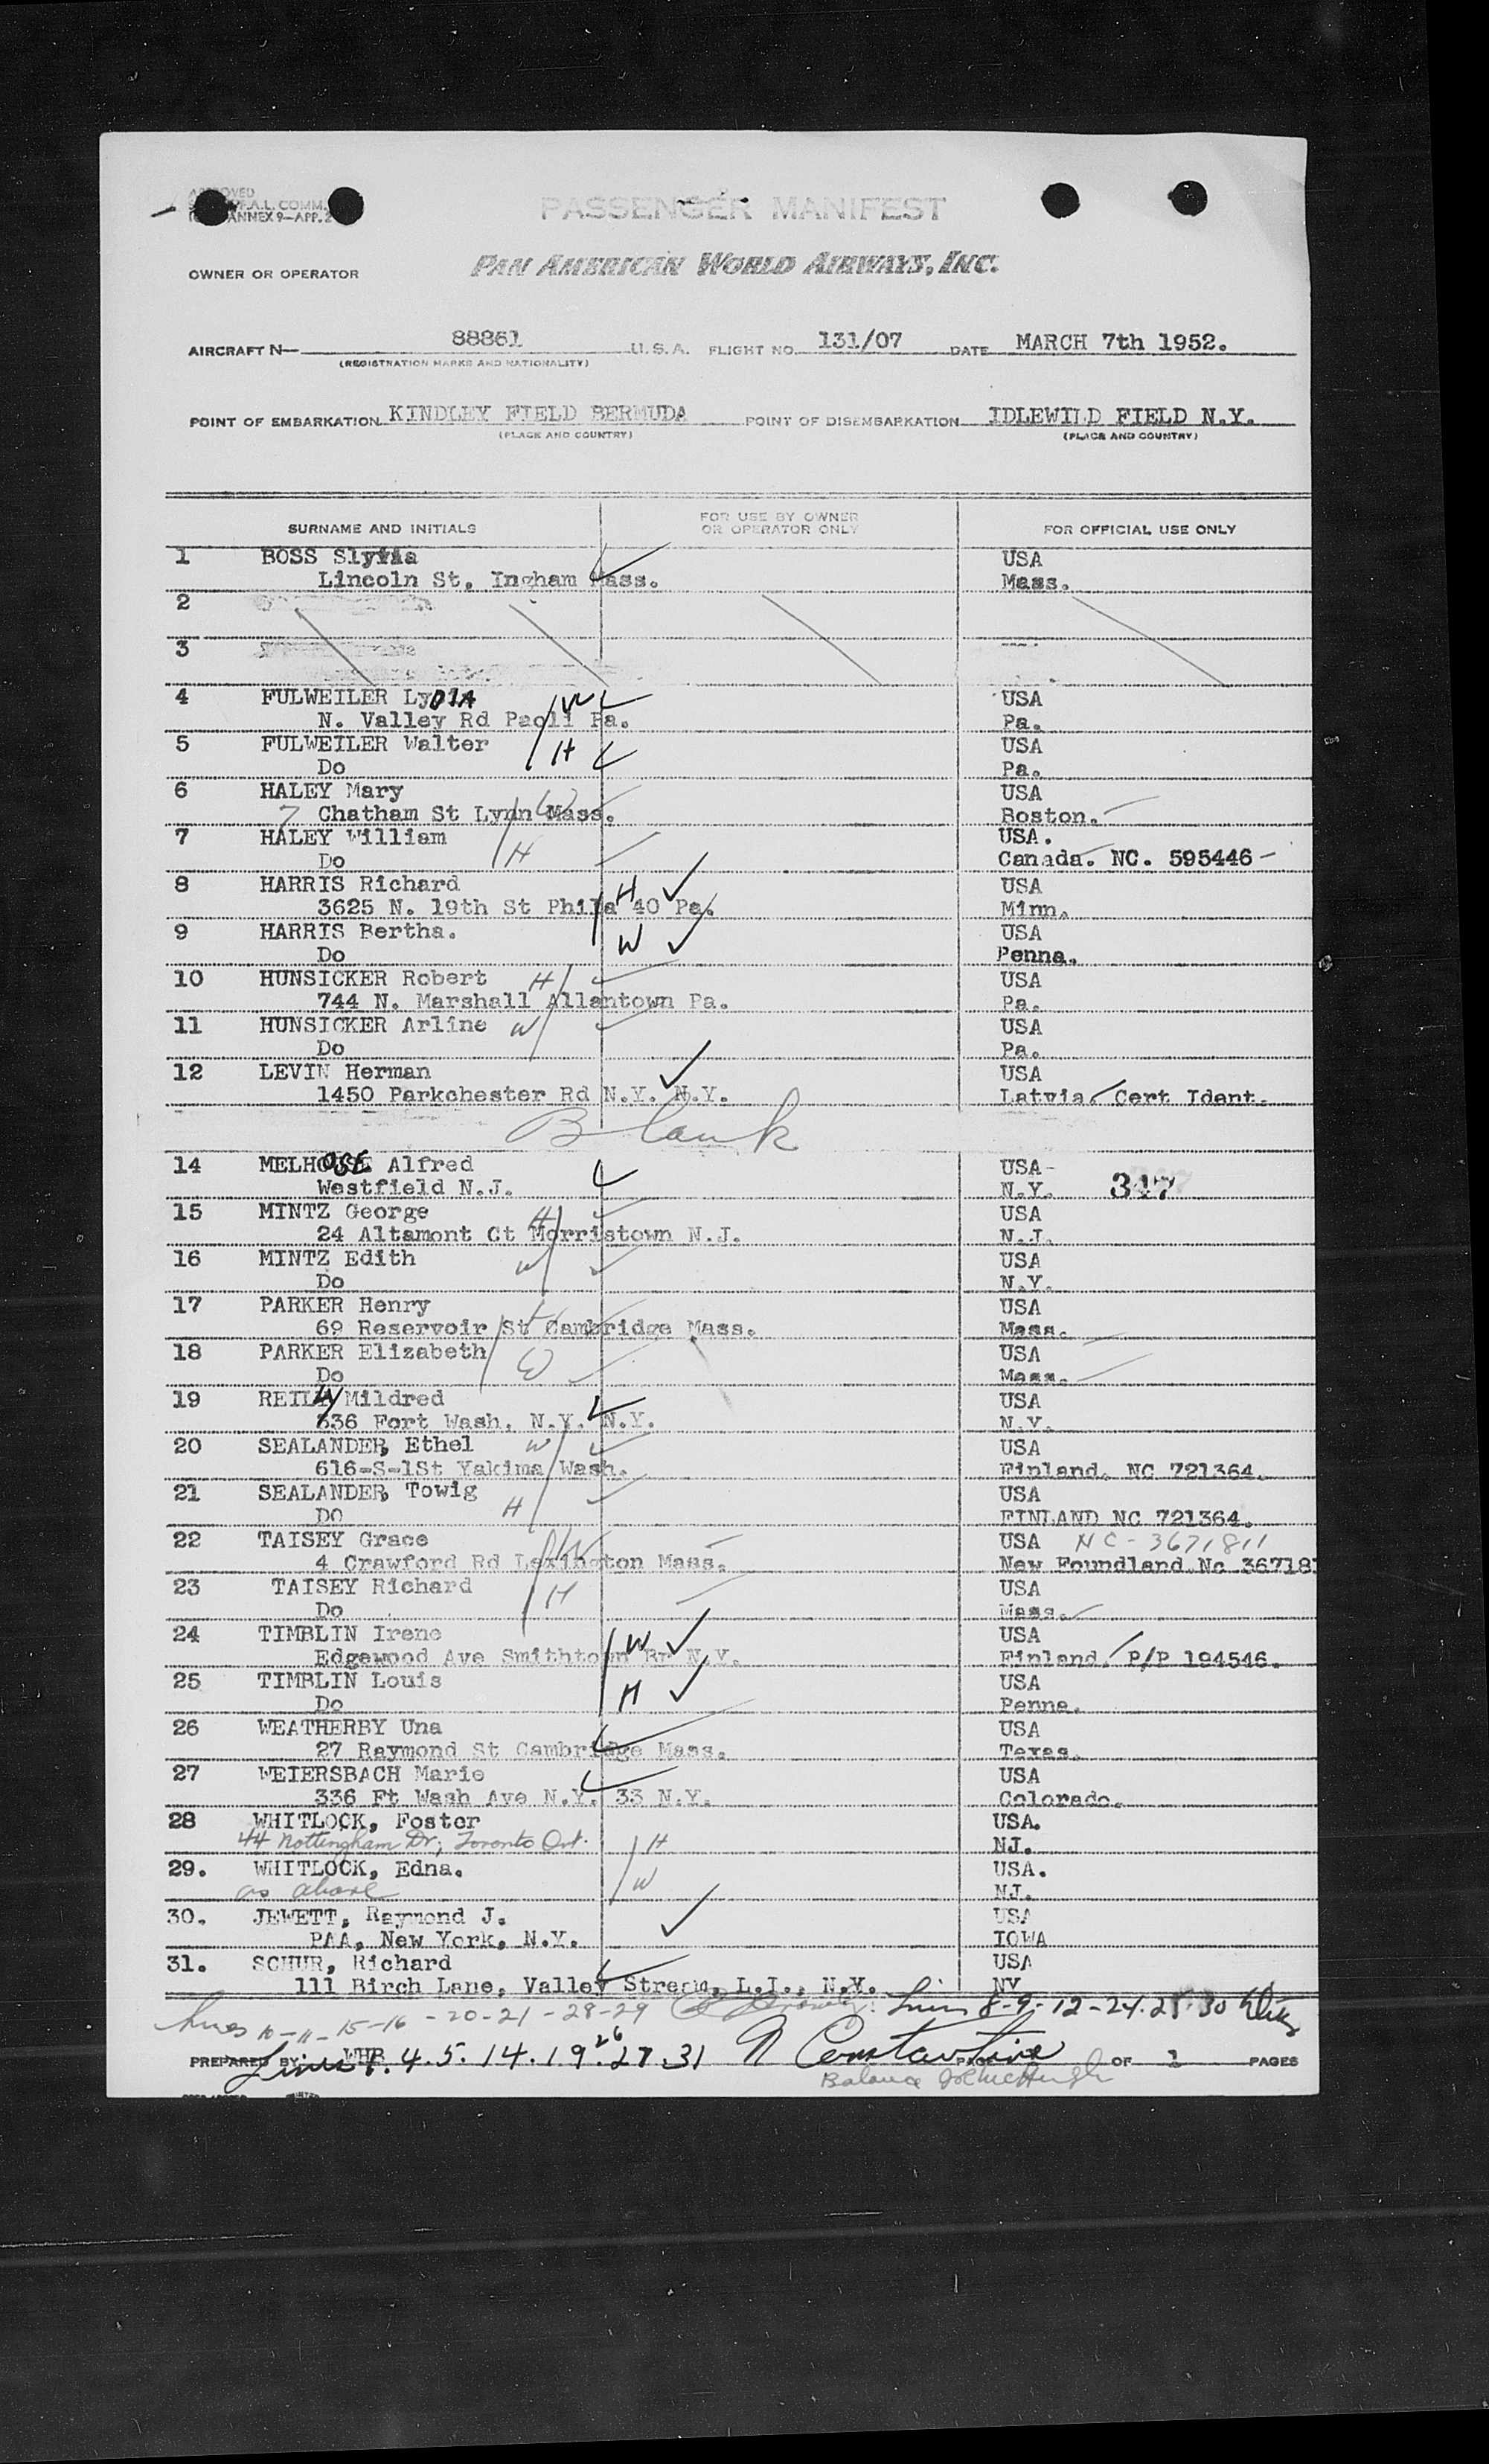 APPROVED
A.L. COMM.
ANNEX 9—APP. 2
PASSENGER MANIFEST
OWNER OR OPERATOR PAN AMERICAN WORLD AIRWAYS, INC.
AIRCRAFT N— 88861 U.S.A. FLIGHT NO. 131/07 DATE MARCH 7th 1952.
(REGISTRATION MARKS AND NATIONALITY)
POINT OF EMBARKATION KINDLEY FIELD BERMUDA POINT OF DISEMBARKATION IDLEWILD FIELD N.Y.
(PLACE AND COUNTRY) (PLACE AND COUNTRY)
SURNAME AND INITIALS FOR USE BY OWNER OR OPERATOR ONLY FOR OFFICIAL USE ONLY
1 BOSS Slyvia USA
Lincoln St. Ingham Mass. Mass.
2
3
4 FULWEILER LyDIA W USA
N. Valley Rd Paoli Pa. Pa.
5 FULWEILER Walter H USA
Do Pa.
6 HALEY Mary W USA
7 Chatham St Lynn Mass. Boston.
7 HALEY William H USA.
Do Canada. NC. 595446 -
8 HARRIS Richard H USA
3625 N. 19th St Phila 40 Pa. Minn.
9 HARRIS Bertha. W USA
Do Penna.
10 HUNSICKER Robert H USA
744 N. Marshall Allentown Pa. Pa.
11 HUNSICKER Arline W USA
Do Pa.
12 LEVIN Herman USA
1450 Parkchester Rd N.Y. N.Y. Latvia Cert Ident.
Blank
14 MELHOSE Alfred USA-
Westfield N.J. N.Y. 347
15 MINTZ George H USA
24 Altamont Ct Morristown N.J. N.J.
16 MINTZ Edith W USA
Do N.Y.
17 PARKER Henry H USA
69 Reservoir St Cambridge Mass. Mass.
18 PARKER Elizabeth W USA
Do Mass.
19 REILLY Mildred USA
336 Fort Wash. N.Y. N.Y. N.Y.
20 SEALANDER, Ethel W USA
616-S-1St Yakima Wash. Finland. NC 721364.
21 SEALANDER, Towig H USA
DO FINLAND NC 721364.
22 TAISEY Grace W USA NC-3671811
4 Crawford Rd Lexington Mass. New Foundland Nc 36718
23 TAISEY Richard H USA
Do Mass.
24 TIMBLIN Irene W USA
Edgewood Ave Smithtown Br N.Y. Finland P/P 194546.
25 TIMBLIN Louis H USA
Do Penna.
26 WEATHERBY Una USA
27 Raymond St Cambridge Mass. Texas.
27 WEIERSBACH Marie USA
336 Ft Wash Ave N.Y. 33 N.Y. Colorado.
28 WHITLOCK, Foster H USA.
44 Nottingham Dr, Toronto Ont. NJ.
29. WHITLOCK, Edna. W USA.
as above NJ.
30. JEWETT, Raymond J. USA
PAA, New York, N.Y. IOWA
31. SCHUR, Richard USA
111 Birch Lane, Valley Stream, L.I., N.Y. NY
Lines 10-11-15-16-20-21-28-29 Lines 8-9-12-24.25.30
PREPARED BY: WHB Lines 1. 4. 5. 14. 19. 26 27. 31 N Constantine PAGE OF 1 PAGES
Balance